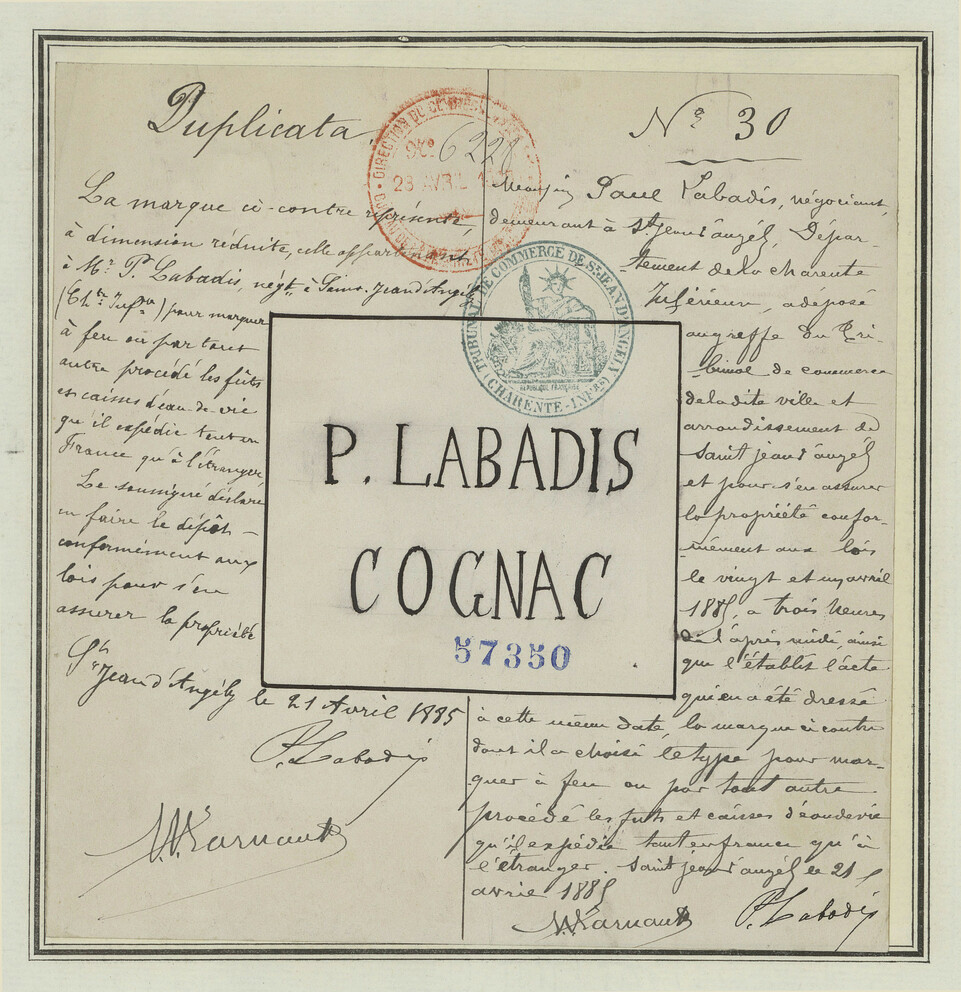 Duplicata
La marque ci-contre représente,
à dimension réduite, celle appartenant
à Mr. P. Labadis, négt. à Saint-Jean d'Angély
(Chte. Infre.) pour marquer
à feu ou par tout
autre procédé les fûts
et caisses d'eau-de-vie
qu'il expédie tant en
France qu'à l'étranger.
Le soussigné déclare
en faire le dépôt
conformément aux
lois pour s'en
assurer la propriété
St. Jean d'Angély le 21 Avril 1885
P. Labadis
DIRECTION DU COMMERCE
No. 6228
23 AVRIL
TRIBUNAL DE COMMERCE DE St. JEAN D'ANGELY
REPUBLIQUE FRANÇAISE
(CHARENTE-INFre.)
P. LABADIS
COGNAC
57350
No. 30
Monsieur Paul Labadis, négociant,
demeurant à St. Jean d'angély, Dépar-
tement de la charente
Inférieure, a déposé
au greffe du Tri-
bunal de commerce
de la dite ville et
arrondissement de
saint jean d'angély
et pour s'en assurer
la propriété confor-
mément aux lois
le vingt et un avril
1885, a trois heures
de l'après midi, ainsi
que l'établit l'acte
qui en a été dressé
à cette même date, la marque ci contre
dont il a choisi le type pour mar-
quer à feu ou par tout autre
procédé les futs et caisses d'eau de vie
qu'il expédie tant en france qu'à
l'étranger. Saint jean d'angély le 21
avril 1885
P. Labadis